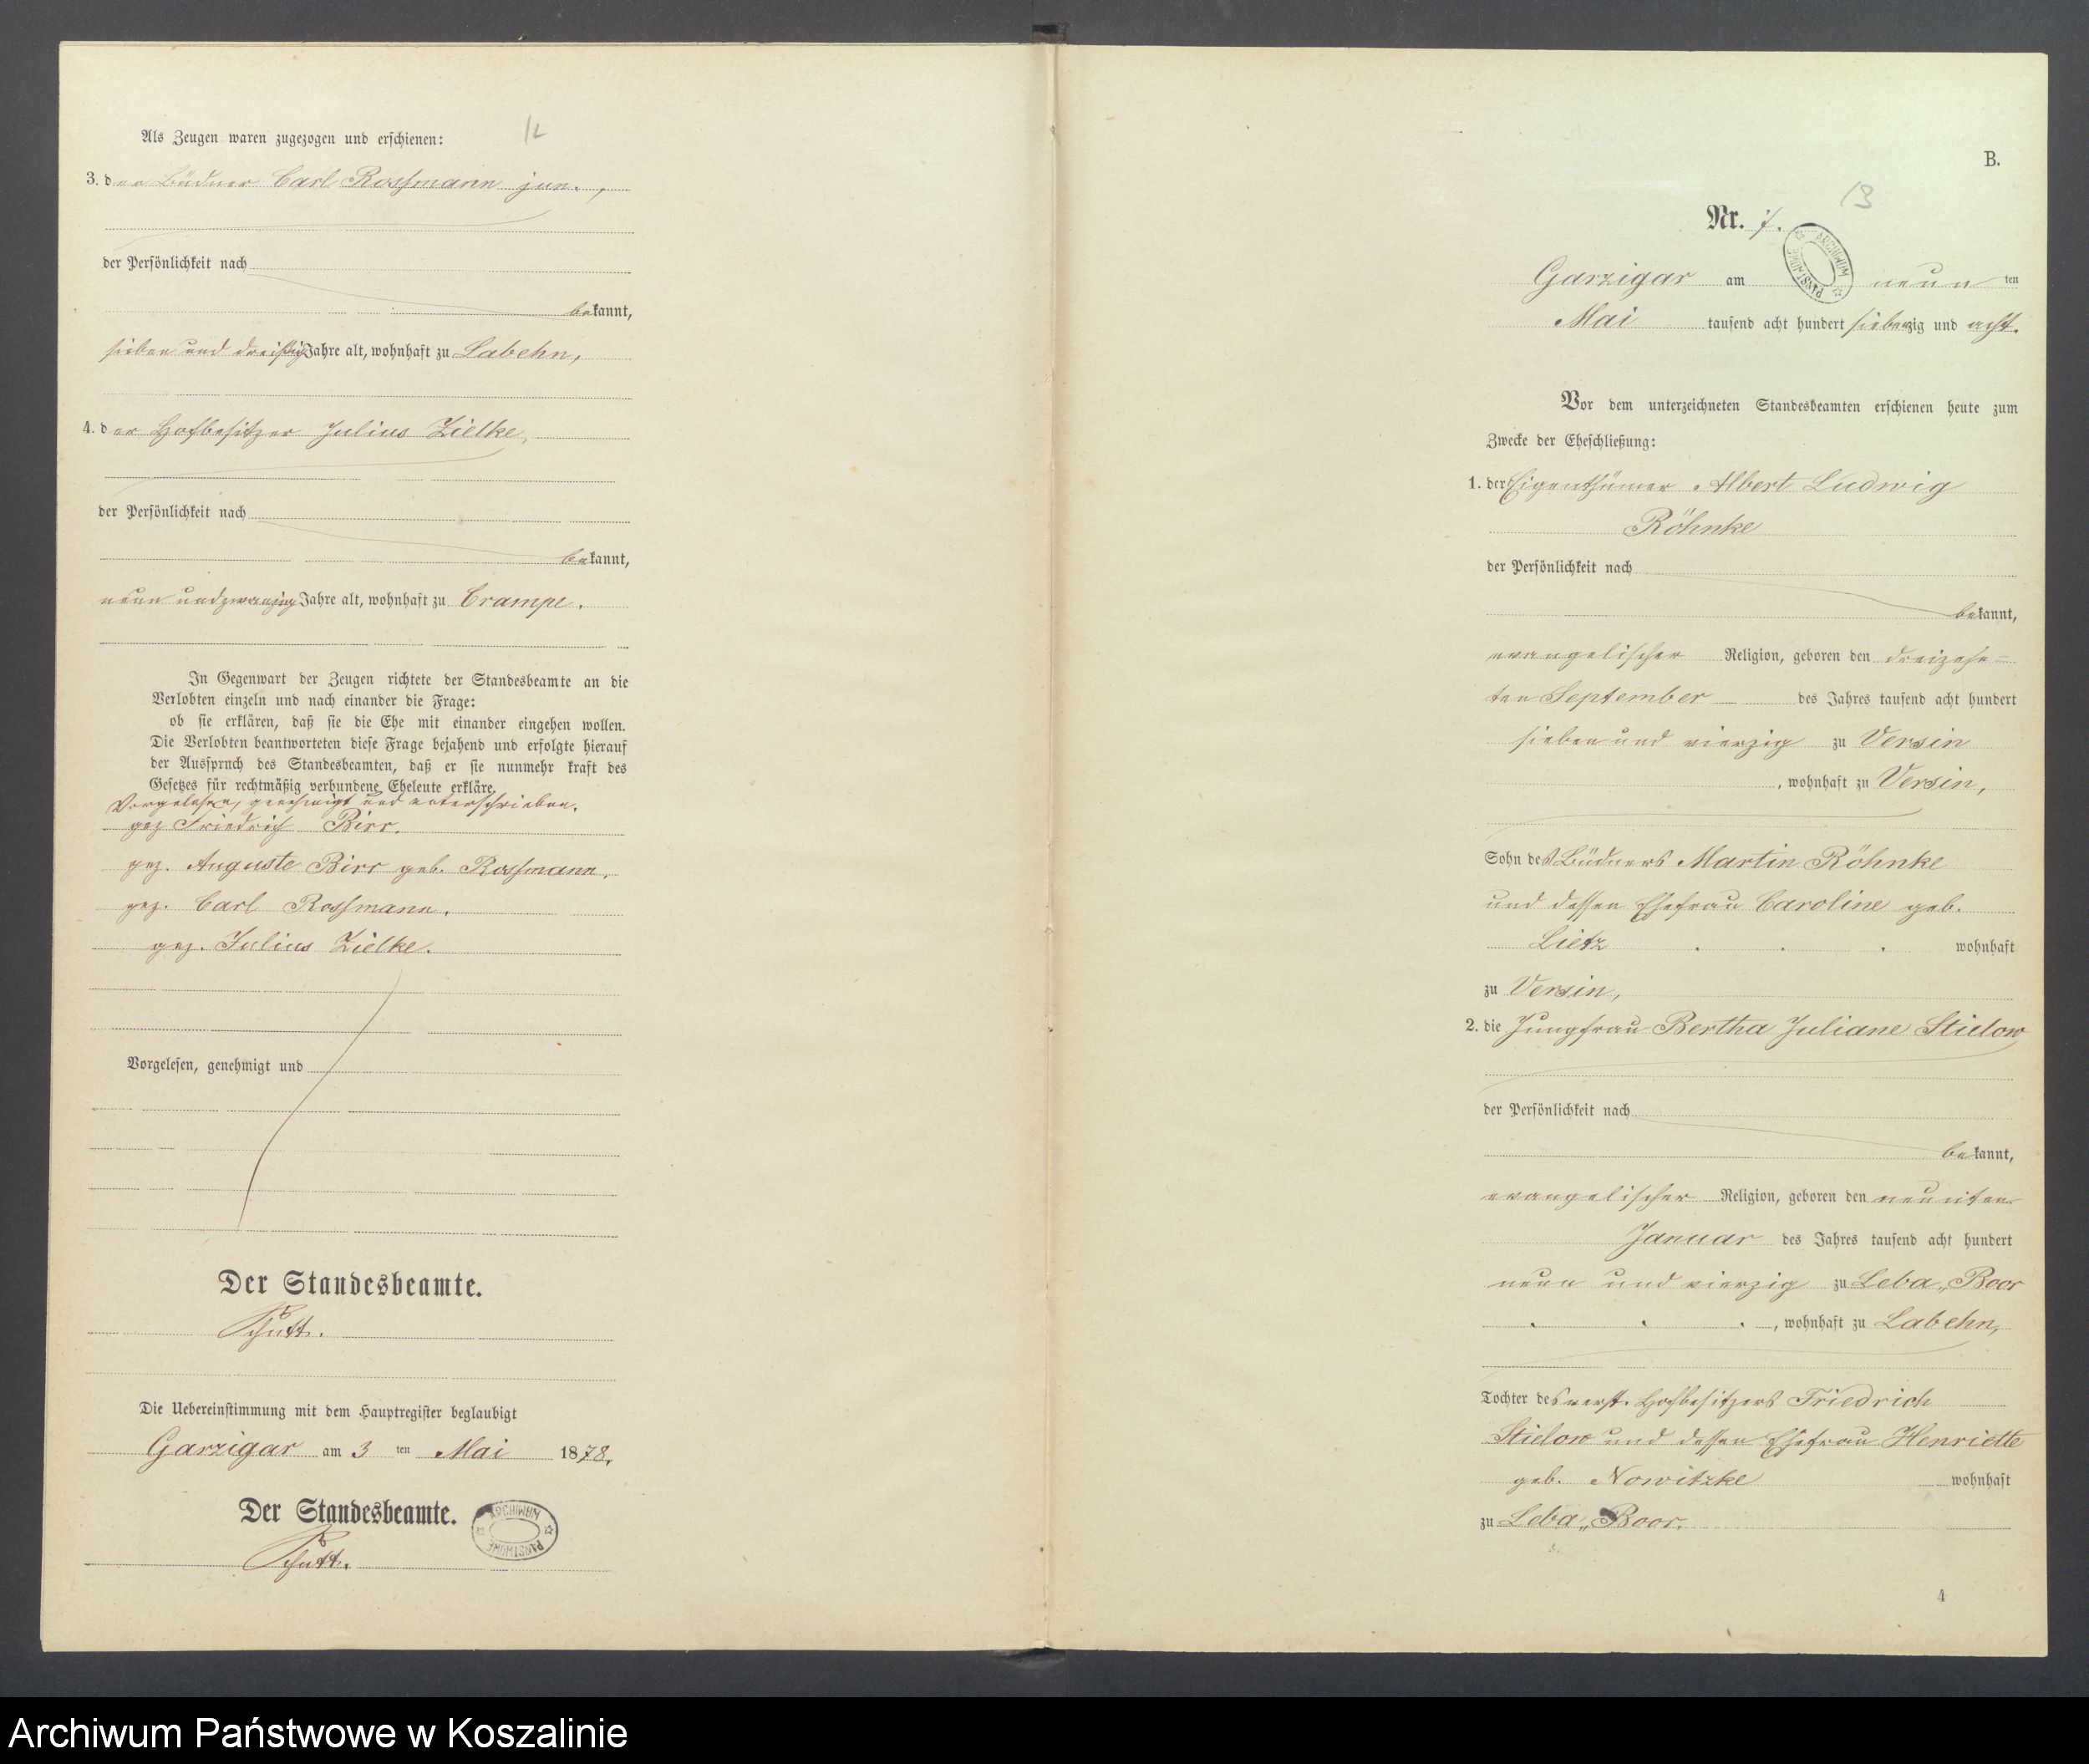 12
Als Zeugen waren zugezogen und erschienen:
3. der Büdner Carl Rossmann jun.,
der Persönlichkeit nach
bekannt,
sieben und dreißig Jahre alt, wohnhaft zu Labehn,
4. der Hofbesitzer Julius Zielke,
der Persönlichkeit nach
bekannt,
neun und zwanzig Jahre alt, wohnhaft zu Crampe.
In Gegenwart der Zeugen richtete der Standesbeamte an die
Verlobten einzeln und nach einander die Frage:
ob sie erklären, daß sie die Ehe mit einander eingehen wollen.
Die Verlobten beantworteten diese Frage bejahend und erfolgte hierauf
der Ausspruch des Standesbeamten, daß er sie nunmehr kraft des
Gesetzes für rechtmäßig verbundene Eheleute erkläre.
Vorgelesen, genehmigt und unterschrieben.
gez Friedrich Birr.
gez. Auguste Birr geb. Rossmann.
gez. Carl Rossmann.
gez. Julius Zielke.
Vorgelesen, genehmigt und
Der Standesbeamte.
Die Uebereinstimmung mit dem Hauptregister beglaubigt
Garzigar am 3 ten Mai 1878.
Der Standesbeamte.
ARCHIWUM PAŃSTWOWE
B.
13
Nr. 7.
ARCHIWUM PAŃSTWOWE
Garzigar am neun ten
Mai tausend acht hundert siebenzig und acht.
Vor dem unterzeichneten Standesbeamten erschienen heute zum
Zwecke der Eheschließung:
1. der Eigenthümer Albert Ludwig
Röhnke
der Persönlichkeit nach
bekannt,
evangelischer Religion, geboren den dreizehn=
ten September des Jahres tausend acht hundert
sieben und vierzig zu Versin
, wohnhaft zu Versin,
Sohn des Büdners Martin Röhnke
und dessen Ehefrau Caroline geb.
Lietz wohnhaft
zu Versin,
2. die Jungfrau Bertha Juliane Stielow
der Persönlichkeit nach
bekannt,
evangelischer Religion, geboren den neunten
Januar des Jahres tausend acht hundert
neun und vierzig zu Leba„Boor
, wohnhaft zu Labehn,
Tochter des verst. Hofbesitzers Friedrich
Stielow und dessen Ehefrau Henriette
geb. Nowitzke wohnhaft
zu Leba„Boor.
4
Archiwum Państwowe w Koszalinie